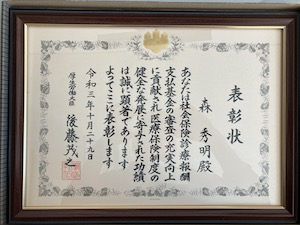 表彰状
森 秀明殿
あなたは社会保険診療報酬
支払基金の審査の充実向上
に貢献され医療保険制度の
健全な発展に寄与された功績
は誠に顕著であります
よってここに表彰します
令和三年十月二十九日
厚生労働大臣 後藤茂之